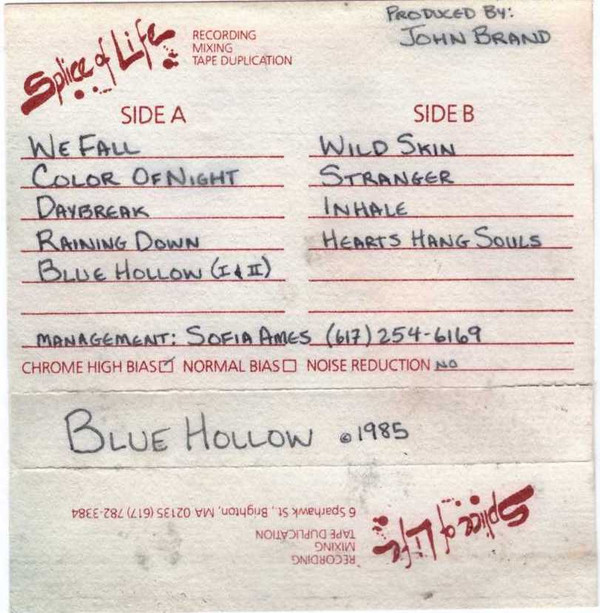 PRODUCED BY:
JOHN BRAND
Splice of Life
RECORDING
MIXING
TAPE DUPLICATION
SIDE A
WE FALL
COLOR OF NIGHT
DAYBREAK
RAINING DOWN
BLUE HOLLOW (I & II)
SIDE B
WILD SKIN
STRANGER
INHALE
HEARTS HANG SOULS
MANAGEMENT: SOFIA AMES (617) 254-6169
CHROME HIGH BIAS ☑ NORMAL BIAS ☐ NOISE REDUCTION NO
BLUE HOLLOW © 1985
Splice of Life
RECORDING
MIXING
TAPE DUPLICATION
6 Sparhawk St., Brighton, MA 02135 (617) 782-3384